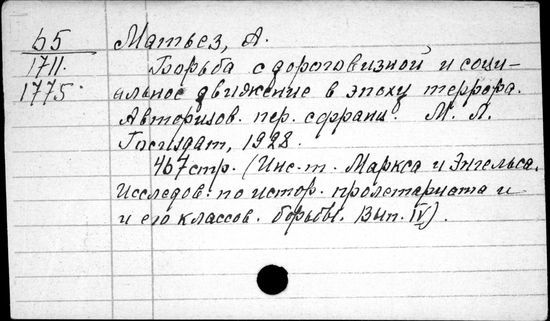 65
1711.
1775.
Матьез, А.
Борьба с дороговизной и соци-
альное движение в эпоху террора.
Авторизов. пер. с франц. М. Л.
Госиздат, 1928.
467 стр. (Инс-т. Маркса и Энгельса.
Исследов. по истор. пролетариата и
и его классов. борьбы. Вып. IV).